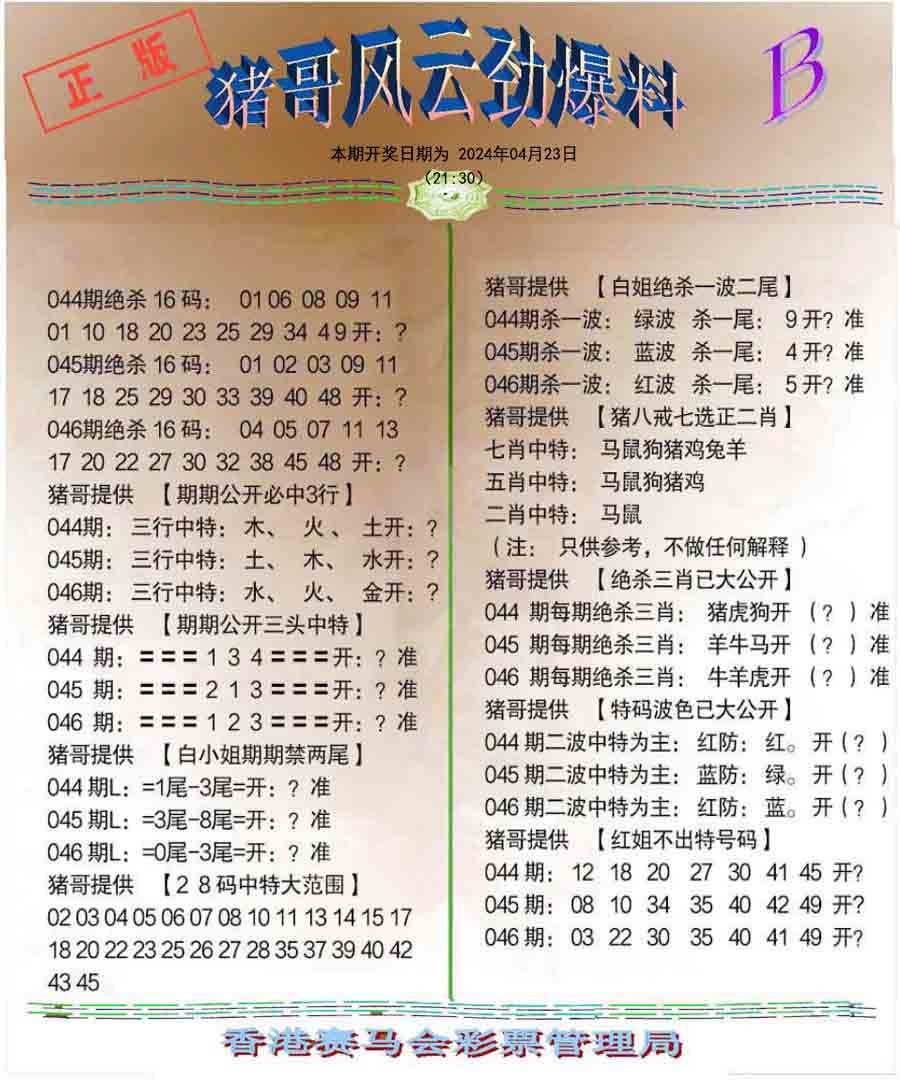 正版
猪哥风云劲爆料
B
本期开奖日期为 2024年04月23日
(21:30)
044期绝杀 16 码： 01 06 08 09 11
01 10 18 20 23 25 29 34 49 开：?
045期绝杀 16 码： 01 02 03 09 11
17 18 25 29 30 33 39 40 48 开：?
046期绝杀 16 码： 04 05 07 11 13
17 20 22 27 30 32 38 45 48 开：?
猪哥提供 【期期公开必中3行】
044期：三行中特：木、 火、 土开：?
045期：三行中特：土、 木、 水开：?
046期：三行中特：水、 火、 金开：?
猪哥提供 【期期公开三头中特】
044 期：===1 3 4===开：? 准
045 期：===2 1 3===开：? 准
046 期：===1 2 3===开：? 准
猪哥提供 【白小姐期期禁两尾】
044期L：=1尾-3尾=开：? 准
045期L：=3尾-8尾=开：? 准
046期L：=0尾-3尾=开：? 准
猪哥提供 【2 8码中特大范围】
02 03 04 05 06 07 08 10 11 13 14 15 17
18 20 22 23 25 26 27 28 35 37 39 40 42
43 45
猪哥提供 【白姐绝杀一波二尾】
044期杀一波： 绿波 杀一尾： 9 开? 准
045期杀一波： 蓝波 杀一尾： 4 开? 准
046期杀一波： 红波 杀一尾： 5 开? 准
猪哥提供 【猪八戒七选正二肖】
七肖中特： 马鼠狗猪鸡兔羊
五肖中特： 马鼠狗猪鸡
二肖中特： 马鼠
（注： 只供参考，不做任何解释 ）
猪哥提供 【绝杀三肖已大公开】
044 期每期绝杀三肖： 猪虎狗开 （? ）准
045 期每期绝杀三肖： 羊牛马开 （? ）准
046 期每期绝杀三肖： 牛羊虎开 （? ）准
猪哥提供 【特码波色已大公开】
044 期二波中特为主：红防：红。开（? ）
045 期二波中特为主：蓝防：绿。开（? ）
046 期二波中特为主：红防：蓝。开（? ）
猪哥提供 【红姐不出特号码】
044 期： 12 18 20 27 30 41 45 开?
045 期： 08 10 34 35 40 42 49 开?
046 期： 03 22 30 35 40 41 49 开?
香港赛马会彩票管理局